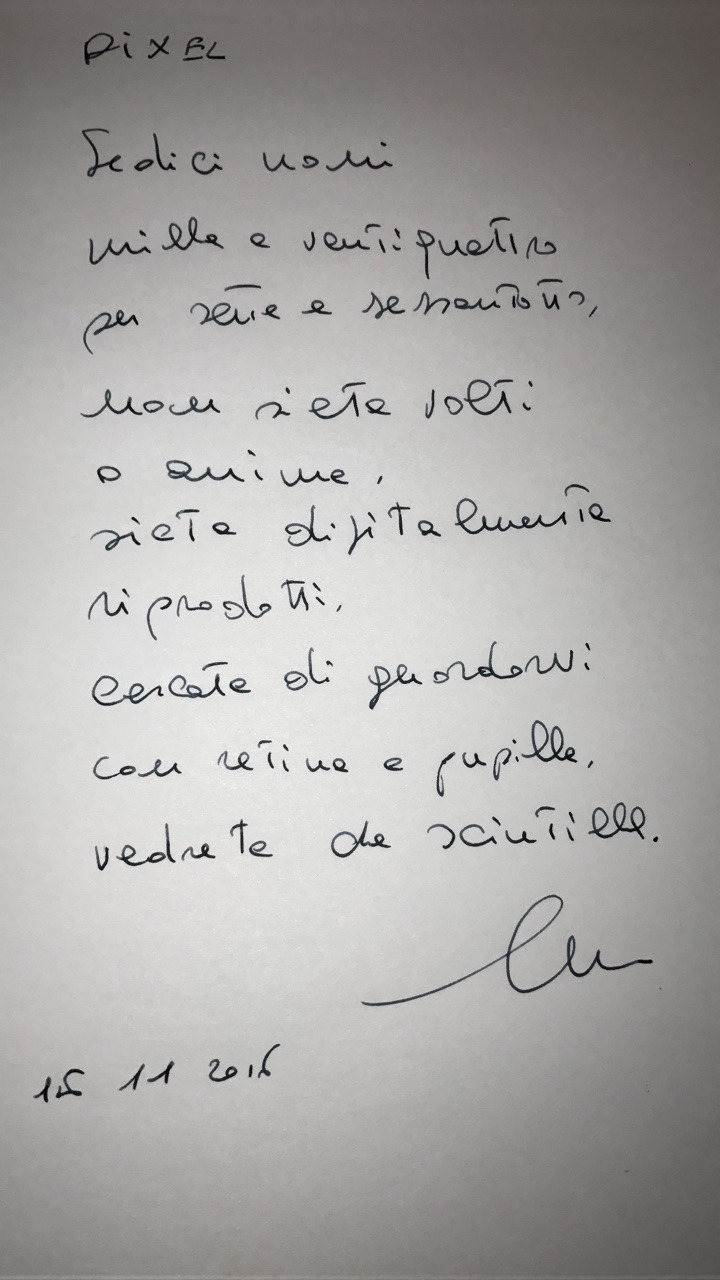 PIXEL
Sedici noni
mille e ventiquattro
per sette e sessantotto,
non siete volti
o anime,
siete digitalmente
riprodotti.
Cercate di guardarvi
con retine e pupille,
vedrete che scintille.
11